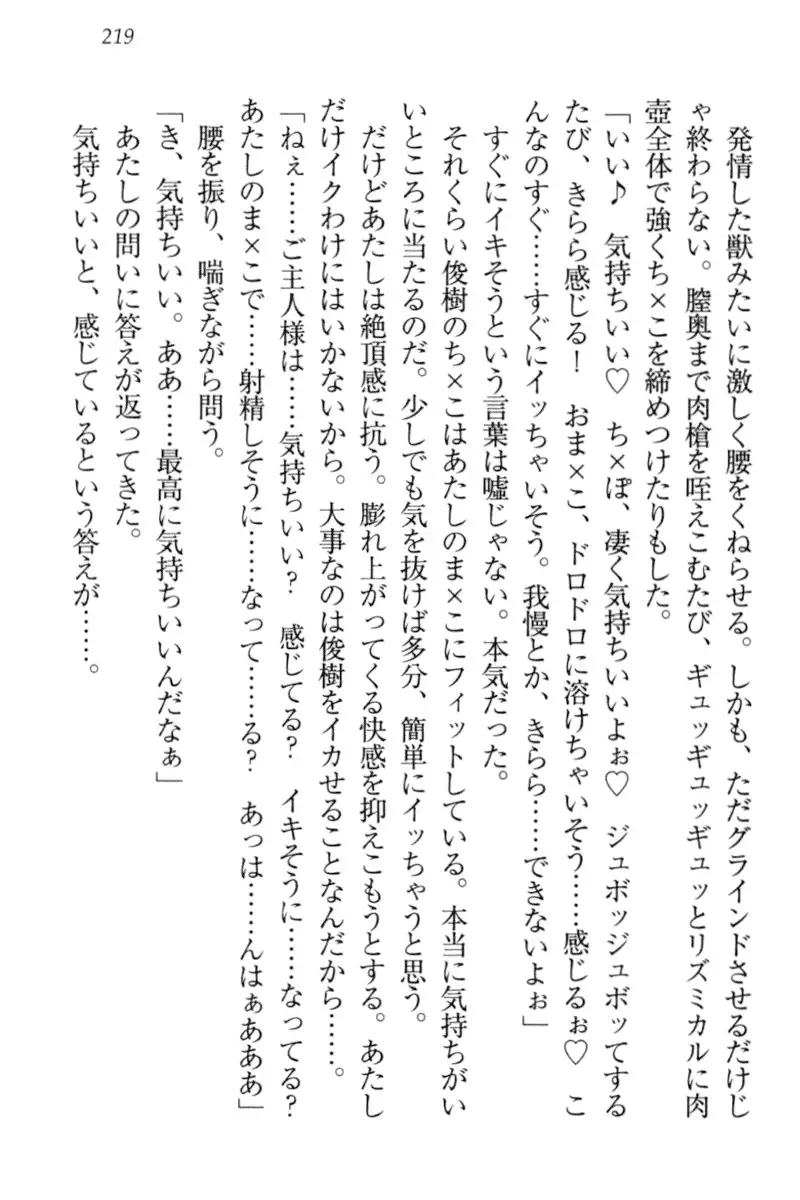 219
発情した獣みたいに激しく腰をくねらせる。しかも、ただグラインドさせるだけじ
ゃ終わらない。膣奥まで肉槍を咥えこむたび、ギュッギュッギュッとリズミカルに肉
壺全体で強くち×こを締めつけたりもした。
「いい♪　気持ちいい♡　ち×ぽ、凄く気持ちいいよぉ♡　ジュボッジュボッてする
たび、きらら感じる！　おま×こ、ドロドロに溶けちゃいそう……感じるぉ♡　こ
んなのすぐ……すぐにイッちゃいそう。我慢とか、きらら……できないよぉ」
すぐにイキそうという言葉は嘘じゃない。本気だった。
それくらい俊樹のち×こはあたしのま×こにフィットしている。本当に気持ちがい
いところに当たるのだ。少しでも気を抜けば多分、簡単にイッちゃうと思う。
だけどあたしは絶頂感に抗う。膨れ上がってくる快感を抑えこもうとする。あたし
だけイクわけにはいかないから。大事なのは俊樹をイカせることなんだから……。
「ねぇ……ご主人様は……気持ちいい？　感じてる？　イキそうに……なってる？
あたしのま×こで……射精しそうに……なって……る？　あっは……んはぁあああ」
腰を振り、喘ぎながら問う。
「き、気持ちいい。ああ……最高に気持ちいいんだなぁ」
あたしの問いに答えが返ってきた。
気持ちいいと、感じているという答えが……。